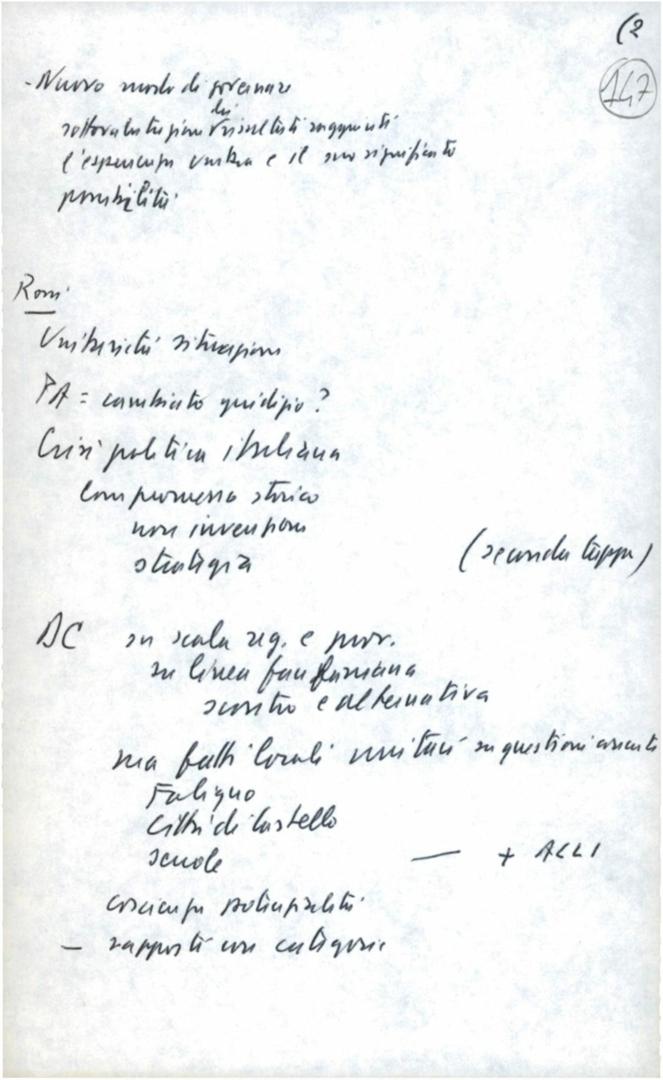 (2
147
- Nuovo modo di governare
sottovalutazione dei risultati raggiunti
l'esperienza umbra e il suo significato
possibilità
Rossi
Unitarietà situazione
PA = cambiato giudizio?
Crisi politica italiana
Compromesso storico
non invenzione
strategia (seconda tappa)
DC su scala reg. e prov.
su linea fanfaniana
scontro e alternativa
ma fatti locali unitari su questioni concrete
Foligno
Città di Castello
scuole — + ACLI
coscienza
— rapporti con categorie